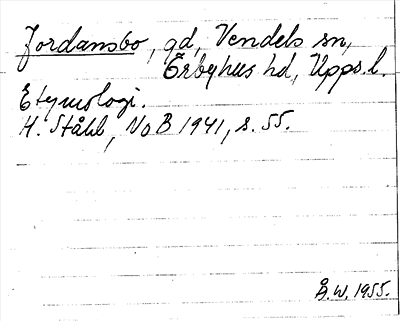 Jordansbo, gd, Vendels sn,
Örbyhus hd, Upps. l.
Etymologi.
H. Ståhl, NoB 1941, s. 55.
Å.W. 1955.